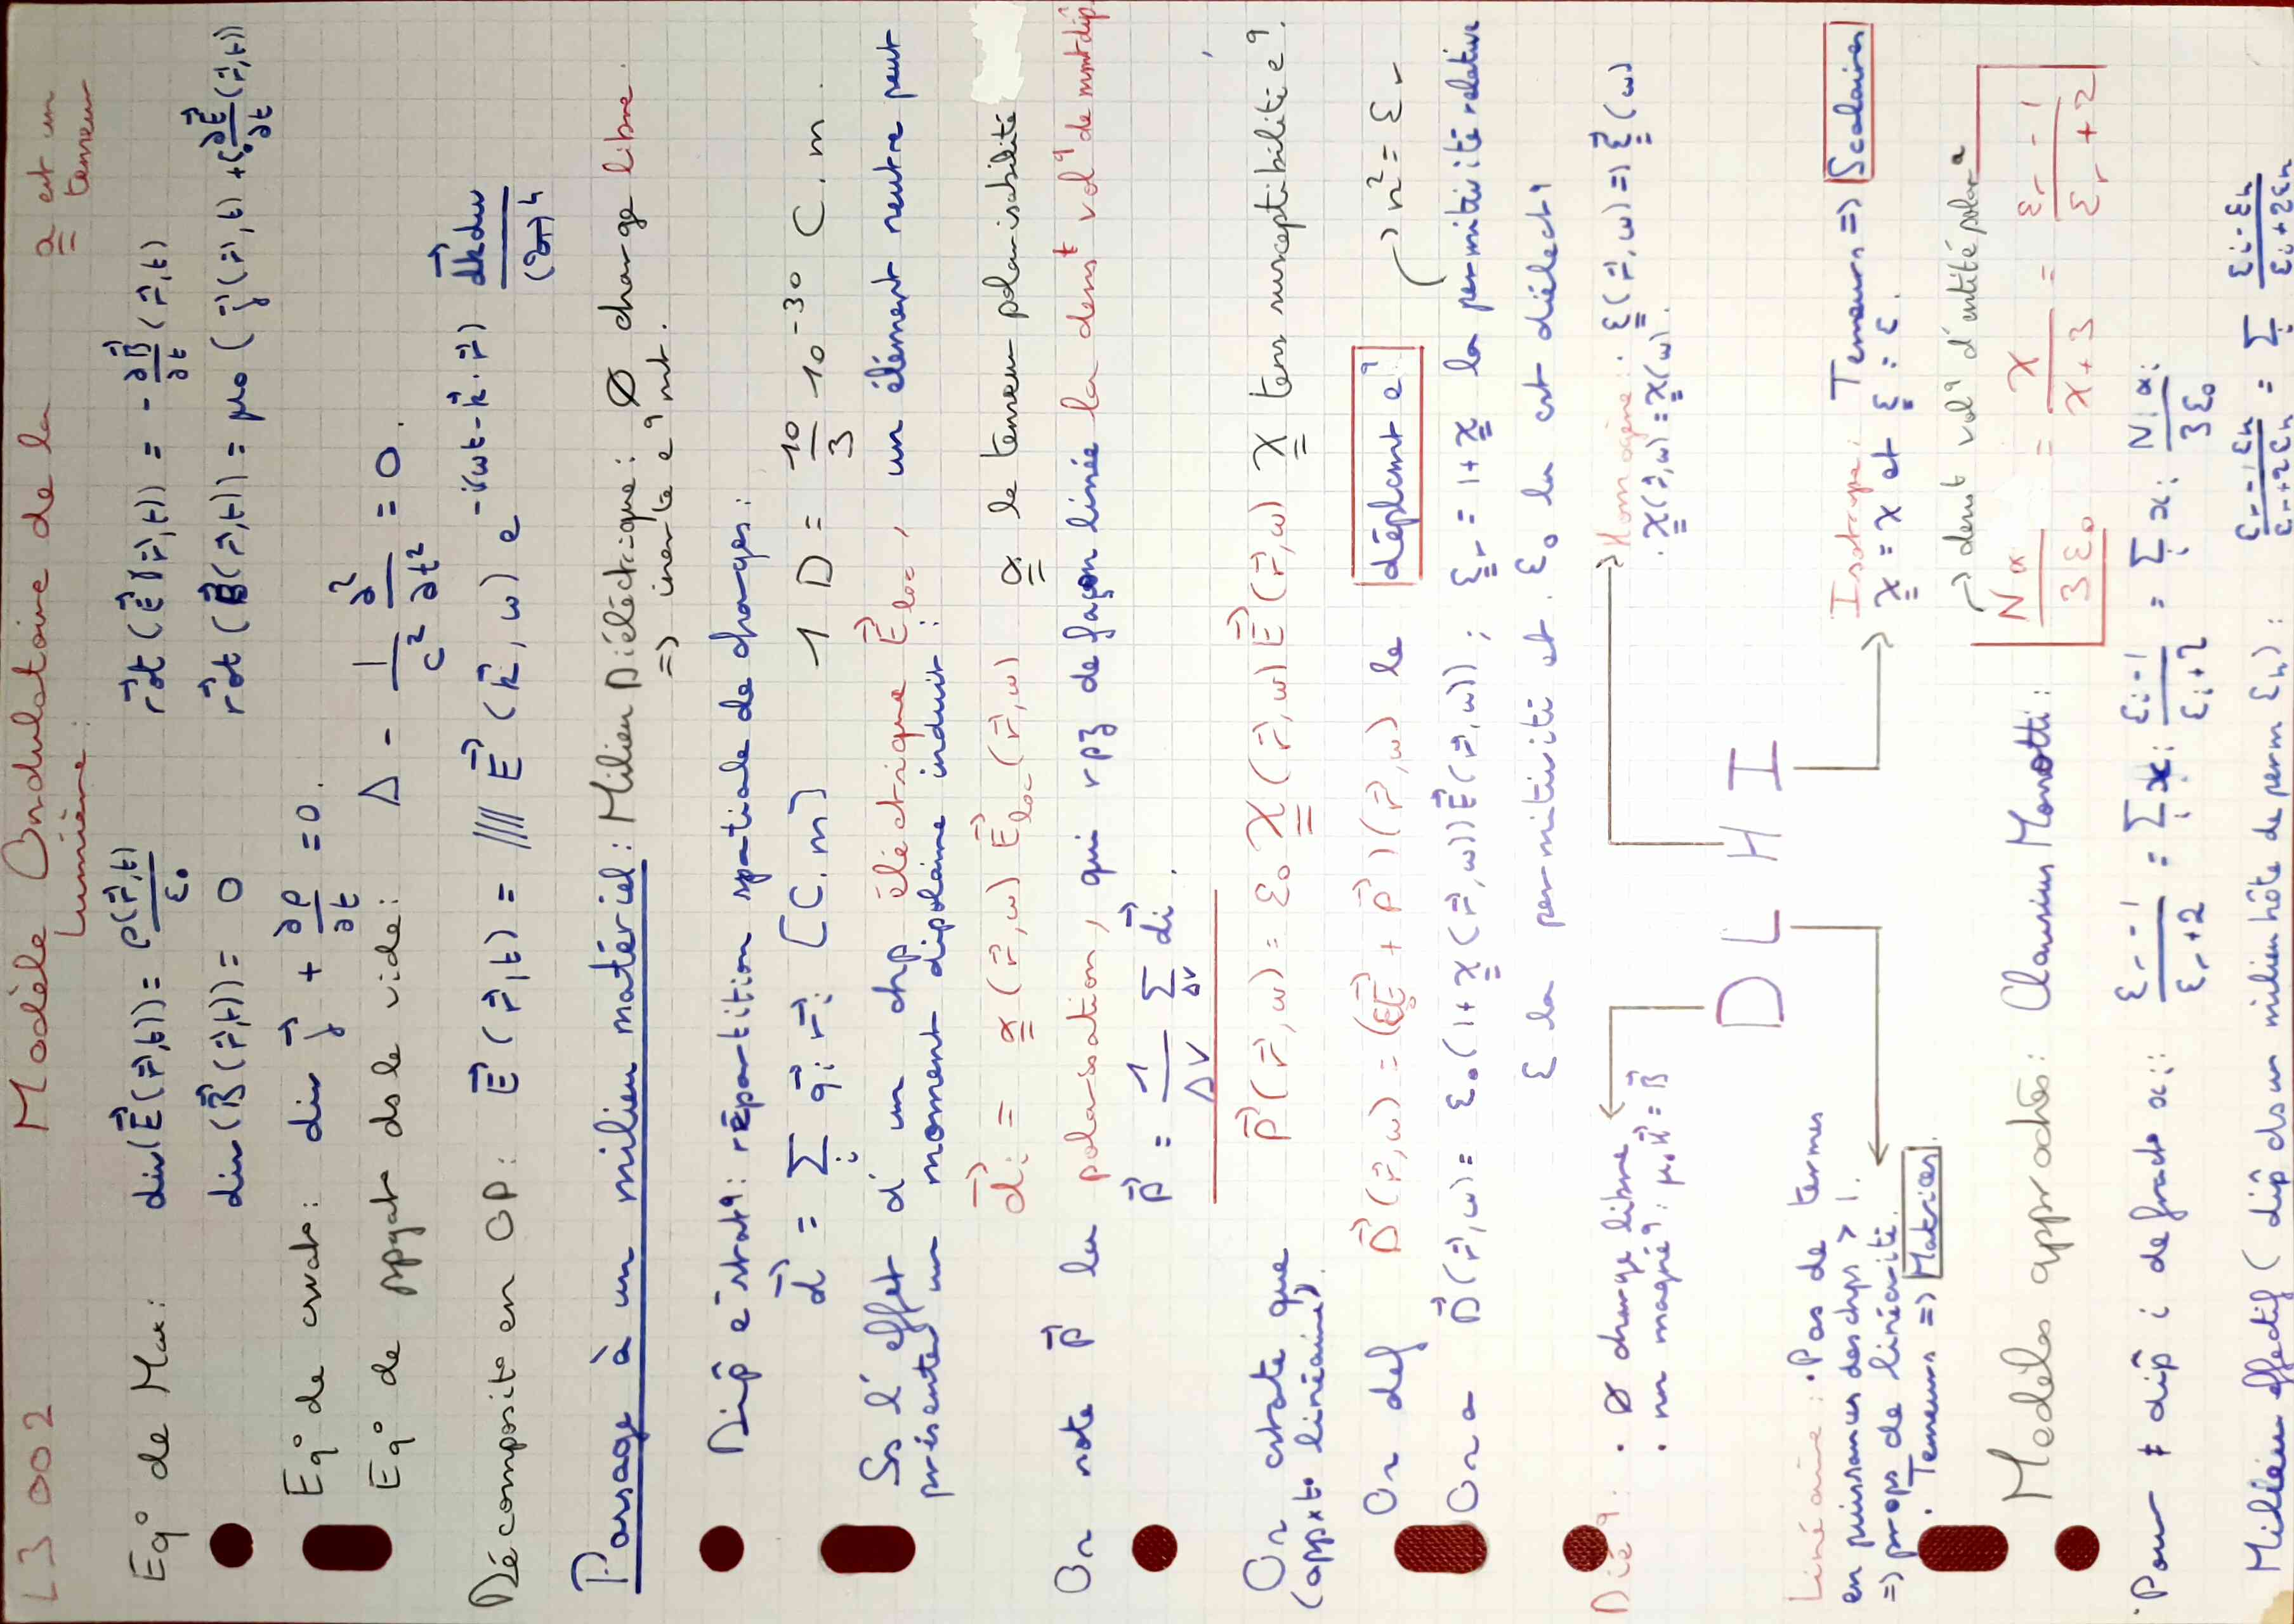 L3 OO2 Modèle Ondulatoire de la Lumière : a̳ est un tenseur
Eq° de Max: div(E⃗(r⃗,t)) = ρ(r⃗,t)/ε₀ rot⃗(E⃗(r⃗,t)) = -∂B⃗/∂t (r⃗,t)
div(B⃗(r⃗,t)) = 0 rot⃗(B⃗(r⃗,t)) = μ₀(j⃗(r⃗,t) + ε₀ ∂E⃗/∂t (r⃗,t))
Eq° de cvat°: div j⃗ + ∂ρ/∂t = 0.
Eq° de ppgat° ds le vide: Δ - 1/c² ∂²/∂t² = 0.
Décomposit° en OP: E⃗(r⃗,t) = //// E⃗(k⃗,ω) e^-i(ωt-k⃗.r⃗) dk⃗dω/(2π)⁴
Passage à un milieu matériel: Milieu Diélectrique: Ø charge libre.
=> inerte eq mt.
Dip e¯strat9: répartition spatiale de charges:
d⃗ = Σᵢ qᵢ r⃗ᵢ [C.m] 1 D = 10/3 10⁻³⁰ C.m.
Ss l'effet d'un chp électrique E⃗loc, un élément neutre peut
présenter un moment dipolaire induit:
d⃗ᵢ = α̳(r⃗,ω) E⃗loc(r⃗,ω) α̳ le tenseur polarisabilité
On note P⃗ la polarisation, qui rpz de façon linée la dens^t vol9 de mmt dip.
P⃗ = 1/ΔV Σ_ΔV d⃗ᵢ.
On cstate que P⃗(r⃗,ω) = ε₀ χ̳(r⃗,ω) E⃗(r⃗,ω) χ̳ tens susceptibilité e9.
(appx t° linéaire)
On def D⃗(r⃗,ω) = (ε₀E⃗ + P⃗)(r⃗,ω) le déplcmt e9 n² = εr
On a D⃗(r⃗,ω) = ε₀(1+χ̳(r⃗,ω))E⃗(r⃗,ω)); ε̳r = 1+χ̳ la permitivité relative
ε la permitivité et ε₀ la cst diélect9
Dié9: . Ø charge libre
. nn magné9: μ₀H⃗ = B⃗
Homogène: ε̳(r⃗,ω) => ε̳(ω)
. χ̳(r⃗,ω) = χ̳(ω).
D L H I
Linéaire: . Pas de termes
en puissances des chps > 1.
=> prop de linéarité.
. Tenseurs => Matrices.
Isotrope: Tenseurs => Scalaires
χ̳ = χ et ε̳ = ε.
Modèles approchés: Clausius Mossotti: Nα/3ε₀ = χ/χ+3 = εr-1/εr+2
dens^t vol9 d'entité polar^a
. Pour ≠ dip i de fract° xᵢ: εr-1/εr+2 = Σᵢ xᵢ εᵢ-1/εᵢ+2 = Σᵢ xᵢ Nᵢαᵢ/3ε₀
Milieu effectif (dip ds un milieu hôte de perm εh): εr-εh/εr+2εh = Σᵢ εᵢ-εh/εᵢ+2εh